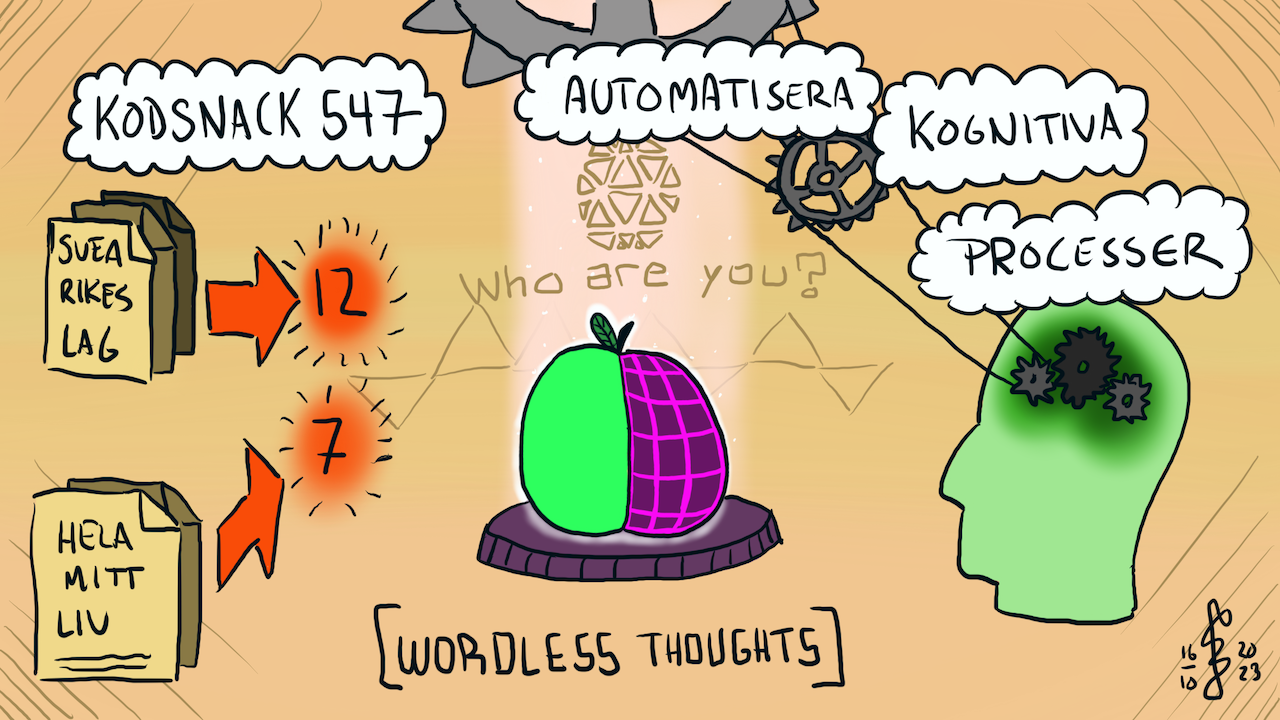 KODSNACK 547
AUTOMATISERA
KOGNITIVA
PROCESSER
SVEA
RIKES
LAG
12
Who are you?
7
HELA
MITT
LIV
[WORDLESS THOUGHTS]
16
10
20
23